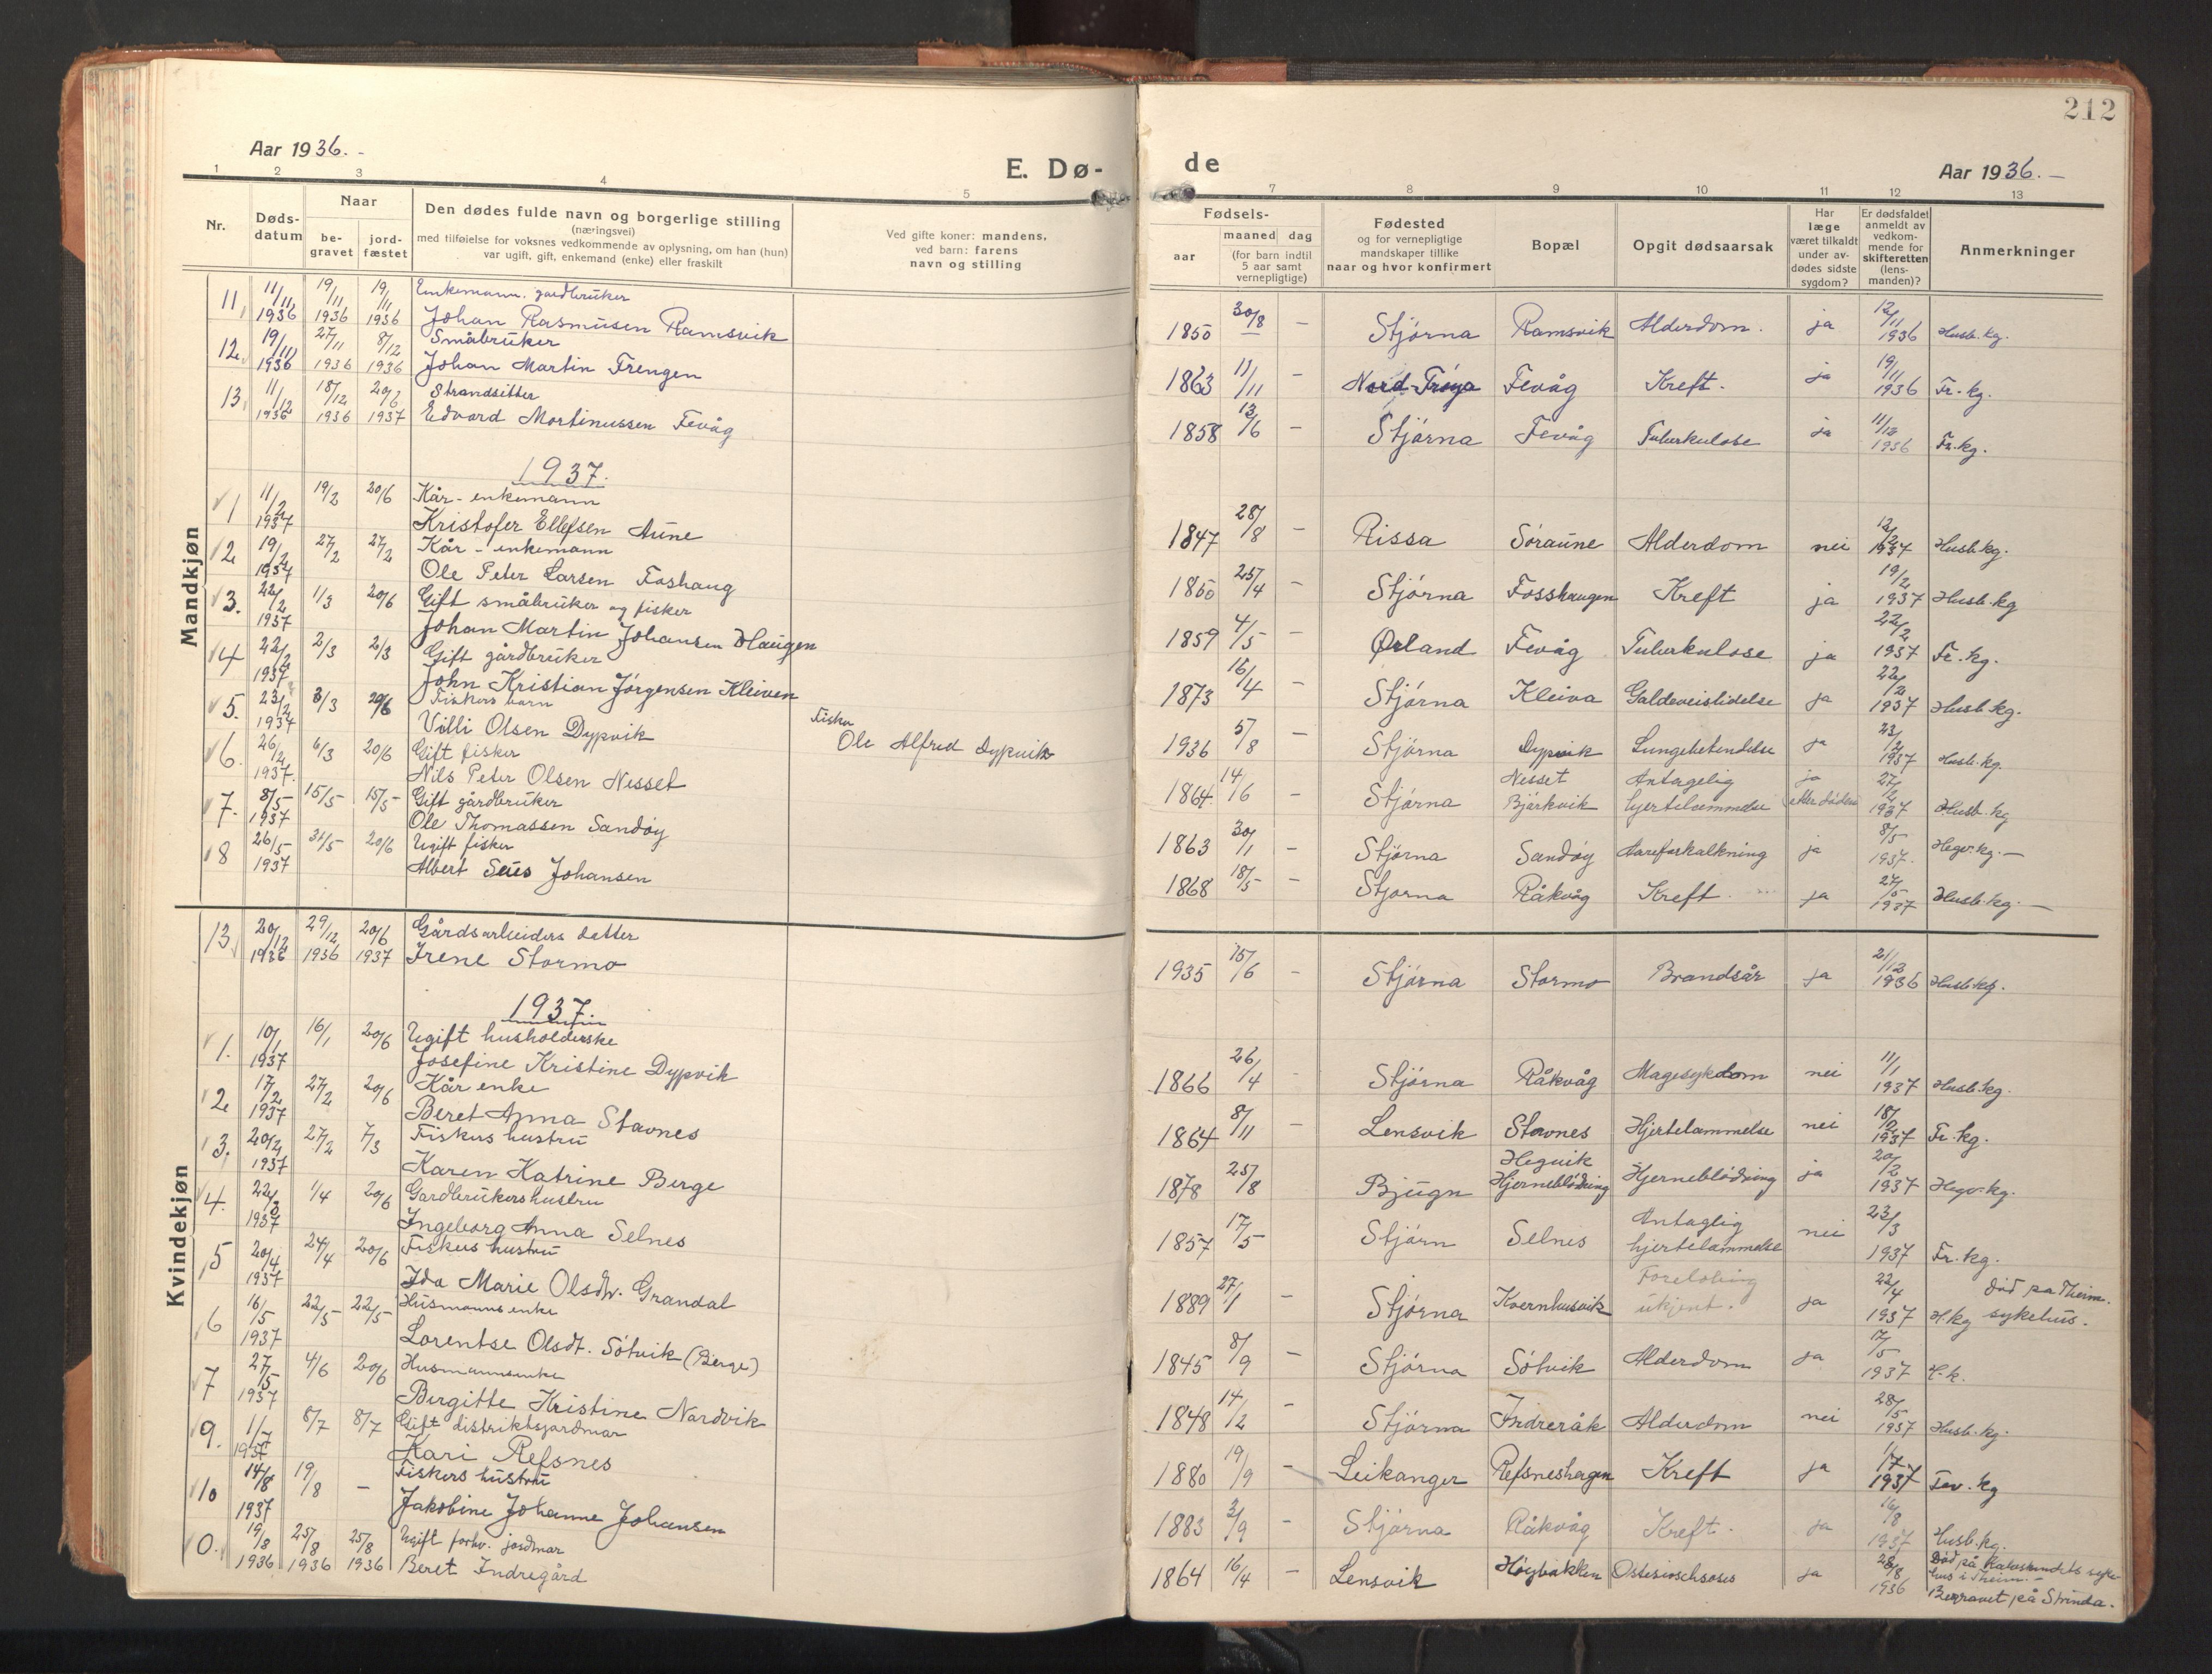 212
Aar 1936.-
E. Dø-
de
Aar 1936.-
1 2 3 4 5 7 8 9 10 11 12 13
Nr.
Døds-
datum
Naar
be-
gravet
jord-
fæstet
Den dødes fulde navn og borgerlige stilling
(næringsvei)
med tilføielse for voksnes vedkommende av oplysning, om han (hun)
var ugift, gift, enkemand (enke) eller fraskilt
Ved gifte koner: mandens,
ved barn: farens
navn og stilling
Fødsels-
aar
maaned dag
(for barn indtil
5 aar samt
vernepligtige)
Fødested
og for vernepligtige
mandskaper tillike
naar og hvor konfirmert
Bopæl
Opgit dødsaarsak
Har
læge
været tilkaldt
under av-
dødes sidste
sygdom?
Er dødsfaldet
anmeldt av
vedkom-
mende for
skifteretten
(lens-
manden)?
Anmerkninger
Mandkjøn
11. 11/11 1936 19/11 1936 19/11 1936 Enkemann. gardbruker
Johan Rasmusen Ramsvik 1850 30/8 - Stjørna Ramsvik Alderdom. ja 12/11 1936 Husb. kg.
12. 19/11 1936 27/11 1936 8/12 1936 Småbruker
Johan Martin Frengen 1863 11/11 - Nord-Frøya Fevåg Kreft. ja 19/11 1936 Fr. kg.
13. 11/12 1936 18/12 1936 20/6 1937 Strandsitter
Edvard Mortinussen Fevåg 1858 13/6 - Stjørna Fevåg Tuberkulose ja 11/12 1936 Fr. kg.
1937.
1 11/2 1937 19/2 20/6 Kår-enkemann
Kristofer Ellefsen Aune 1847 28/8 - Rissa Søraune Alderdom nei 12/2 1937 Husb. kg.
2 19/2 1937 27/2 27/2 Kår - enkemann
Ole Peter Larsen Foshaug 1850 25/4 - Stjørna Fosshaugen Kreft ja 19/2 1937 Husb. kg
3. 22/2 1937 1/3 20/6 Gift småbruker og fisker
Johan Martin Johansen Haugen 1859 4/5 - Ørland Fevåg Tuberkulose ja 22/2 1937 Fr. kg.
4 22/2 1937 2/3 2/3 Gift gårdbruker
John Kristian Jørgensen Kleiven 1873 16/4 - Stjørna Kleiva Galdeveislidelse ja 22/2 1937 Husb. kg.
5. 23/2 1937 3/3 20/6 Fiskers barn
Villi Olsen Dypvik Fisker Ole Alfred Dypvik 1936 5/8 - Stjørna Dypvik Lungebetendelse ja 23/2 1937 Husb. kg.
6. 26/2 1937. 6/3 20/6 Gift fisker
Nils Peter Olsen Nesset 1864. 14/6 - Stjørna Nesset Bjørkvik Antagelig hjertelammelse ja etter døden 27/2 1937 Husb. kg
7. 8/5 1937 15/5 15/5 Gift gårdbruker
Ole Thomassen Sandøy 1863 30/1 - Stjørna Sandøy Aareforkalkning ja 8/5 1937. Hegv. kg. -
8 26/5 1937 31/5 20/6 Ugift fisker
Albert Johansen 1868 18/5 - Stjørna Råkvåg Kreft. ja 27/5 1937 Husb. kg. -
Kvindekjøn
13 20/12 1936 29/12 1936 20/6 1937 Gårdsarbeiders datter
Irene Stormo 1935 15/6 - Stjørna Stormo Brandsår ja 21/12 1936 Husb. kg.
1937.
1. 10/1 1937 16/1 20/6 Ugift husholderske
Josefine Kristine Dypvik 1866 26/4 - Stjørna Råkvåg Magesykdom nei 11/1 1937 Husb. kg.
2. 17/2 1937 27/2 20/6 Kår enke
Beret Anna Stavnes 1864 8/11 - Lensvik Stavnes Hjertelammelse nei 18/2 1937 Fr. kg.
3. 20/2 1937 27/2 7/3 Fiskers hustru
Karen Katrine Berge 1878 25/8 Bjugn Hegvik Hjerneblødning Hjerneblødning ja 20/2 1937 Hegv. kg.
4. 22/3 1937 1/4 20/6 Gardbrukers hustru
Ingeborg Anna Selnes 1857 17/5 Stjørn Selnes Antaglig hjertelammelse nei 23/3 1937 Fr. kg.
5 20/4 1937 24/4 20/6 Fiskers hustru
Ida Marie Olsdtr. Grandal 1889 27/1 - Stjørna Kvernhusvik Foreløbing ukjent. ja 22/4 1937 H. kg død på Theim. sykehus.
6 16/5 1937 22/5 22/5 Husmanns enke
Lorentse Olsdt. Søtvik (Berge) 1845 8/9 - Stjørna Søtvik Alderdom ja 17/5 1937 H. k.
7 27/5 1937 4/6 20/6 Husmannsenke
Birgitte Kristine Nordvik 1848 14/2 - Stjørna Indreråk Alderdom nei 28/5 1937 Husb. kg.
9. 1/7 1937 8/7 8/7 Gift distriktsjordmor
Kari Refsnes 1880 19/9 - Leikanger Refsneshagen Kreft ja 1/7 1937 Fev. kg
10 14/8 1937 19/8 - Fiskers hustru
Jakobine Johanne Johansen 1883 2/9 - Stjørna Råkvåg Kreft. ja 16/8 1937 Husb. kg.
0. 19/8 1936 25/8 1936 25/8 1936 Ugift forhv. jordmor
Beret Indregård 1864 16/4 - Lensvik Høybakken ja 28/8 1936 Død på sykehus i Theim. - Begravet på Strinda.